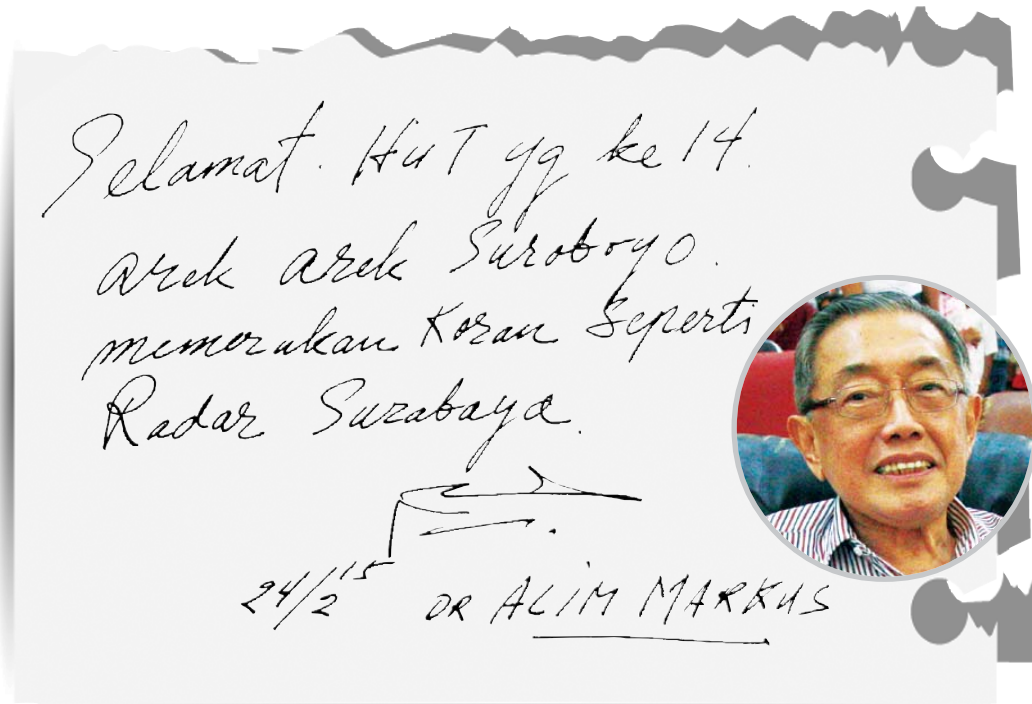 Selamat. HUT yg ke 14.
arek arek Suroboyo.
memerukan Koran seperti
Radar Surabaya.
24/2 15
DR ALIM MARKUS